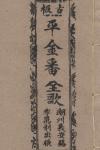 古板
平金番全歌
潮州義安路
李萬利出版